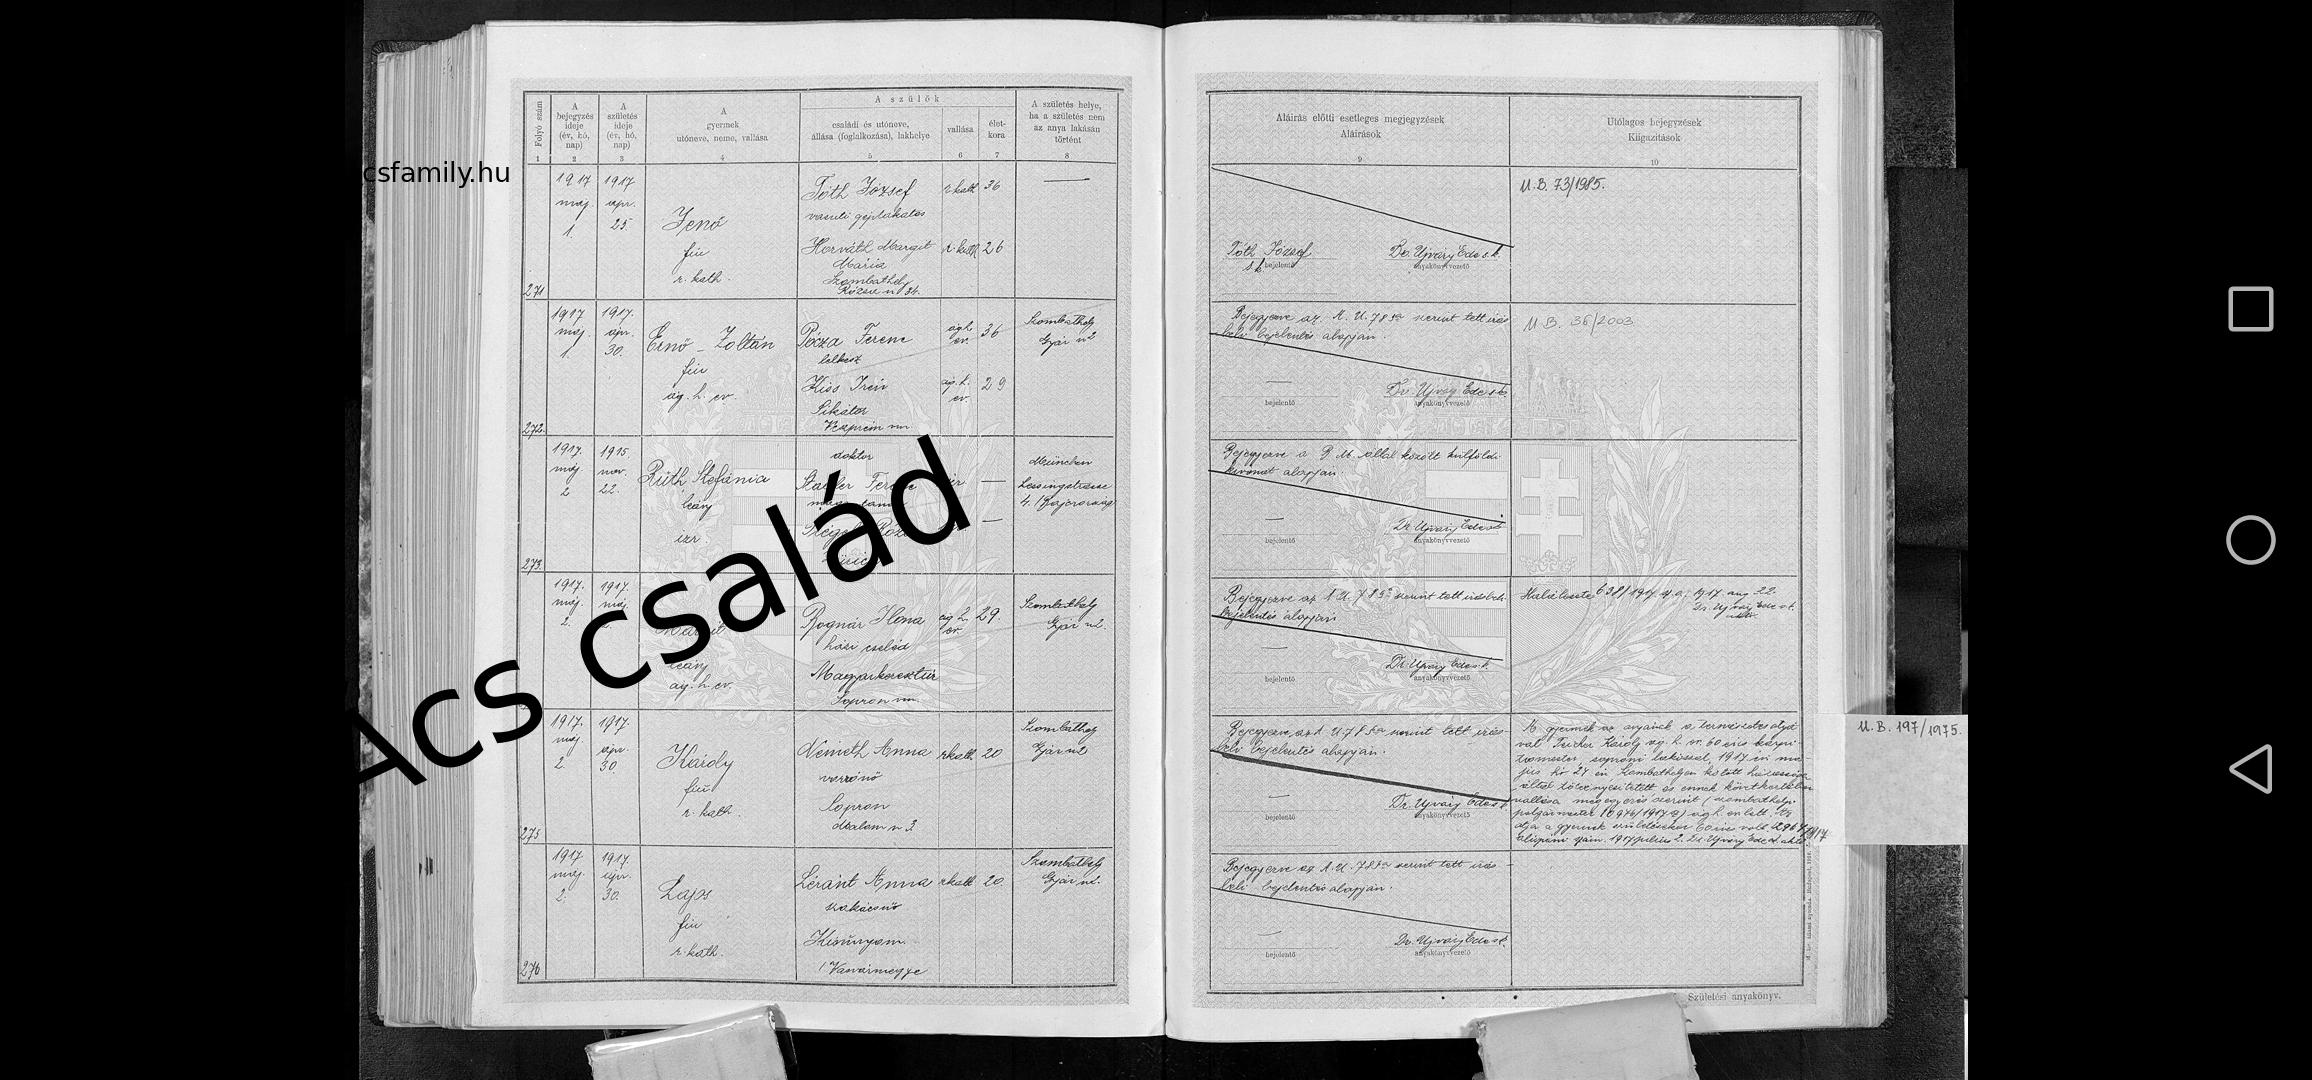 csfamily.hu
Ács család
Folyó szám
A
bejegyzés
ideje
(év, hó,
nap)
A
születés
ideje
(év, hó,
nap)
A
gyermek
utóneve, neme, vallása
A szülők
családi és utóneve,
állása (foglalkozása), lakhelye
vallása
élet-
kora
A születés helye,
ha a születés nem
az anya lakásán
történt
1 2 3 4 5 6 7 8
271
1917
máj.
1.
1917
ápr.
25.
Jenő
fiu
r. kath.
Tóth József
vasuti géplakatos
Horváth Margit
Mária
Szombathely
Rózsa u 34.
r kath 36
r. kath 26
272.
1917
máj.
1.
1917.
ápr.
30.
Ernő - Zoltán
fiu
ág. h. ev.
Pócza Ferenc
lelkész
Kiss Irén
Sikátor
Veszprém vm.
ág h.
ev. 36
ág. h.
ev. 29
Szombathely
Gyár u 2
273.
1917.
máj.
2
1915.
nov.
22.
Ruth Stefánia
leány
izr.
doktor
Ferenc
München
Lessingstrasse
4. (Bajorország)
1917.
máj.
2.
1917.
máj.
Margit
leány
ág. h. ev.
Bognár Ilona
házi cseléd
Magyarkeresztur
Sopron vm.
ág h.
ev. 29.
Szombathely
Gyár u 2.
275
1917.
máj.
2.
1917.
ápr.
30.
Károly
fiu
r. kath.
Németh Anna
varrónő
Sopron
Malom u 3
r kath. 20
Szombathely
Gyár u 2
276
1917
máj.
2.
1917.
ápr.
30.
Lajos
fiu
r. kath.
Léránt Anna
szakácsnő
Kisunyom
(Vasvármegye
r kath 20.
Szombathely
Gyár u 2.
Aláírás előtti esetleges megjegyzések
Aláírások
9
Utólagos bejegyzések
Kiigazítások
10
Tóth József
s. k.
bejelentő
Dr. Ujváry Ede s. k.
anyakönyvvezető
U. B. 73/1985.
Bejegyezve az A. U. 78 §a szerint tett irás-
beli bejelentés alapján.
bejelentő
Dr. Ujváry Ede s. k.
anyakönyvvezető
U. B. 36/2003
Bejegyezve a B. M. által között külföldi
kivonat alapján.
bejelentő
Dr. Ujváry Ede s. k.
anyakönyvvezető
Bejegyezve az A. U. 78 §a szerint tett irásbeli
bejelentés alapján
bejelentő
Dr. Ujváry Ede s. k.
anyakönyvvezető
1917. aug 22.
Dr. Ujváry Ede s. k.
Bejegyezve az A U. 78 §a szerint tett irás-
beli bejelentés alapján.
bejelentő
Dr. Ujváry Ede s. k.
anyakönyvvezető
A gyermek az anyának a természetes atyá
val Károly ág. h. ev. 60 éves kárpi
tosmester, soproni lakossal, 1917 évi má-
jus hó 27 én Szombathelyen kötött házassága
által törvényesittetett és ennek következtében
vallása megegyezés szerint (szombathelyi
polgármester
U. B. 197/1975.
Bejegyezve az A. U. 78 §a szerint tett irás-
beli bejelentés alapján.
bejelentő
Dr. Ujváry Ede s. k.
anyakönyvvezető
Születési anyakönyv.